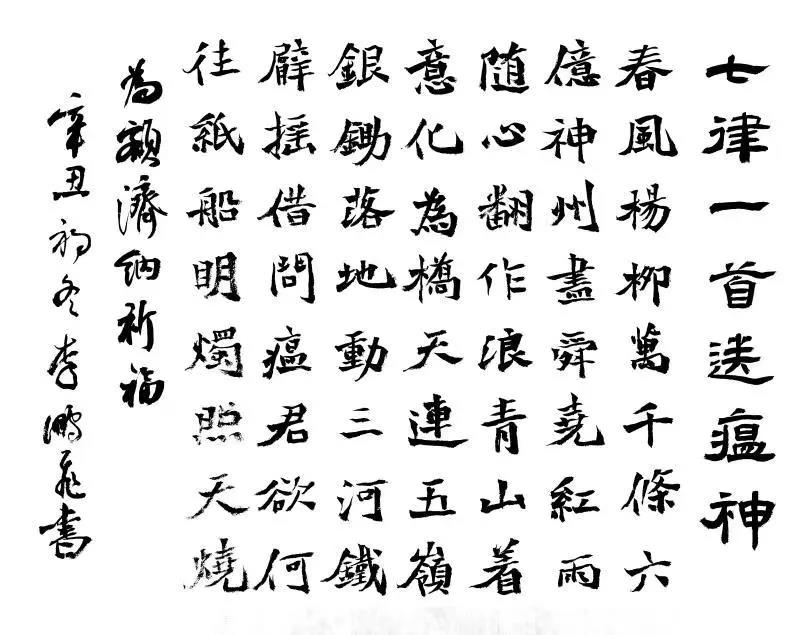 七律一首送瘟神
春風楊柳萬千條六
億神州盡舜堯紅雨
随心翻作浪青山着
意化為橋天連五嶺
銀鋤落地動三河鐵
臂摇借問瘟君欲何
往紙船明燭照天燒
為額濟納祈福
辛丑初冬李鵬飛書